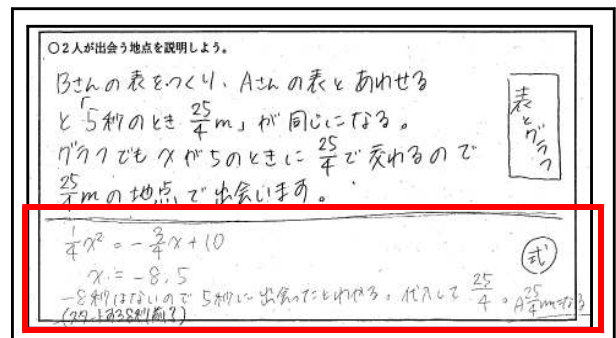 ○2人が出会う地点を説明しよう。
Bさんの表をつくり、Aさんの表とあわせる
と「5秒のとき 25/4 m」が同じになる。
グラフでも x が5のときに 25/4 で交わるので
25/4 mの地点で出会います。
表とグラフ
1/4 x² = -3/4 x + 10
x = -8, 5
式
-8秒はないので 5秒に出会ったとわかる。代入して 25/4 。A 25/4 mになる
(スタートする8秒前?)